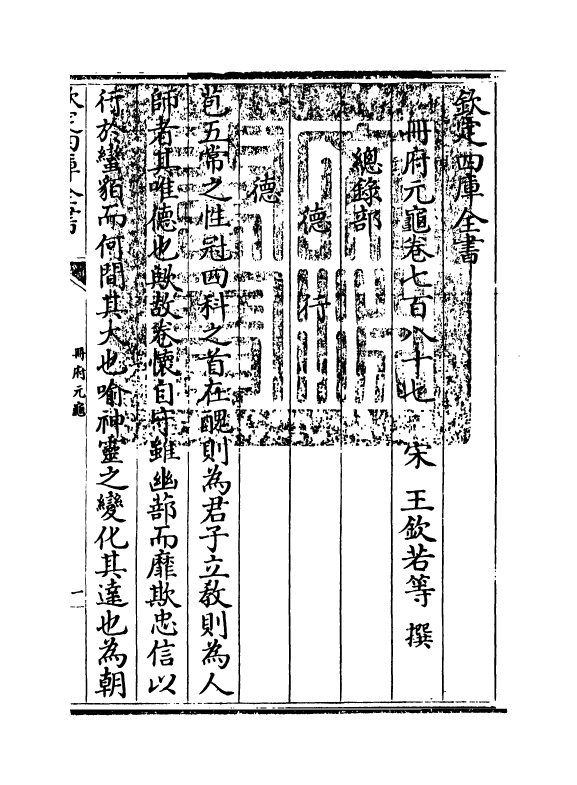 欽定四庫全書
冊府元龜卷七百八十七
宋 王欽若等 撰
總錄部
德行
德
苞五常之性冠四科之首在醜則為君子立教則為人
師者其唯德也歟故卷懷自守雖幽蔀而靡欺忠信以
行於蠻貊而何間其大也喻神靈之變化其達也為朝
欽定四庫全書
冊府元龜
一